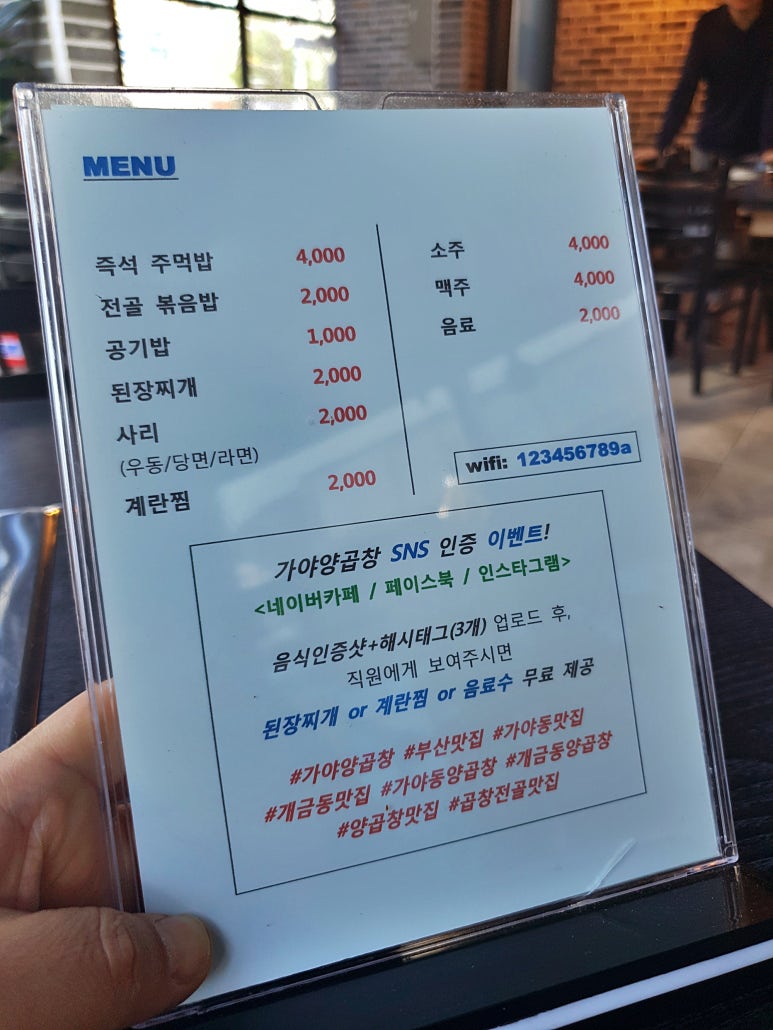 MENU
즉석 주먹밥 4,000
전골 볶음밥 2,000
공기밥 1,000
된장찌개 2,000
사리 2,000
(우동/당면/라면)
계란찜 2,000
소주 4,000
맥주 4,000
음료 2,000
wifi: 123456789a
가야양곱창 SNS 인증 이벤트!
<네이버카페 / 페이스북 / 인스타그램>
음식인증샷+해시태그(3개) 업로드 후,
직원에게 보여주시면
된장찌개 or 계란찜 or 음료수 무료 제공
#가야양곱창 #부산맛집 #가야동맛집
#개금동맛집 #가야동양곱창 #개금동양곱창
#양곱창맛집 #곱창전골맛집